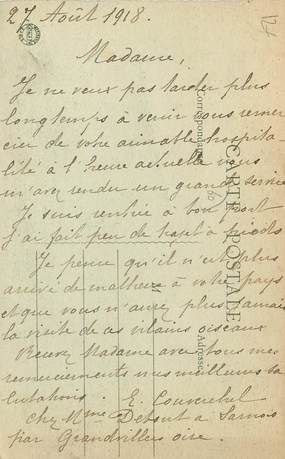 27 Août 1918.
Madame,
Je ne veux pas tarder plus
longtemps à venir vous remer
cier de votre aimable hospita
lité à l'heure actuelle vous
m'avez rendu un grand service
Je suis rentrée à bon port
j'ai fait peu de trajet à pieds
Je pense qu'il n'est plus
arrivé de malheur à votre pays
et que vous n'aurez plus jamais
la visite de ces vilains oiseaux
Recevez Madame avec tous mes
remerciements mes meilleures sa
lutations. E.
chez Mme Debout à Sarnois
par Grandvilliers oise.
CARTE POSTALE
Correspondance
Adresse